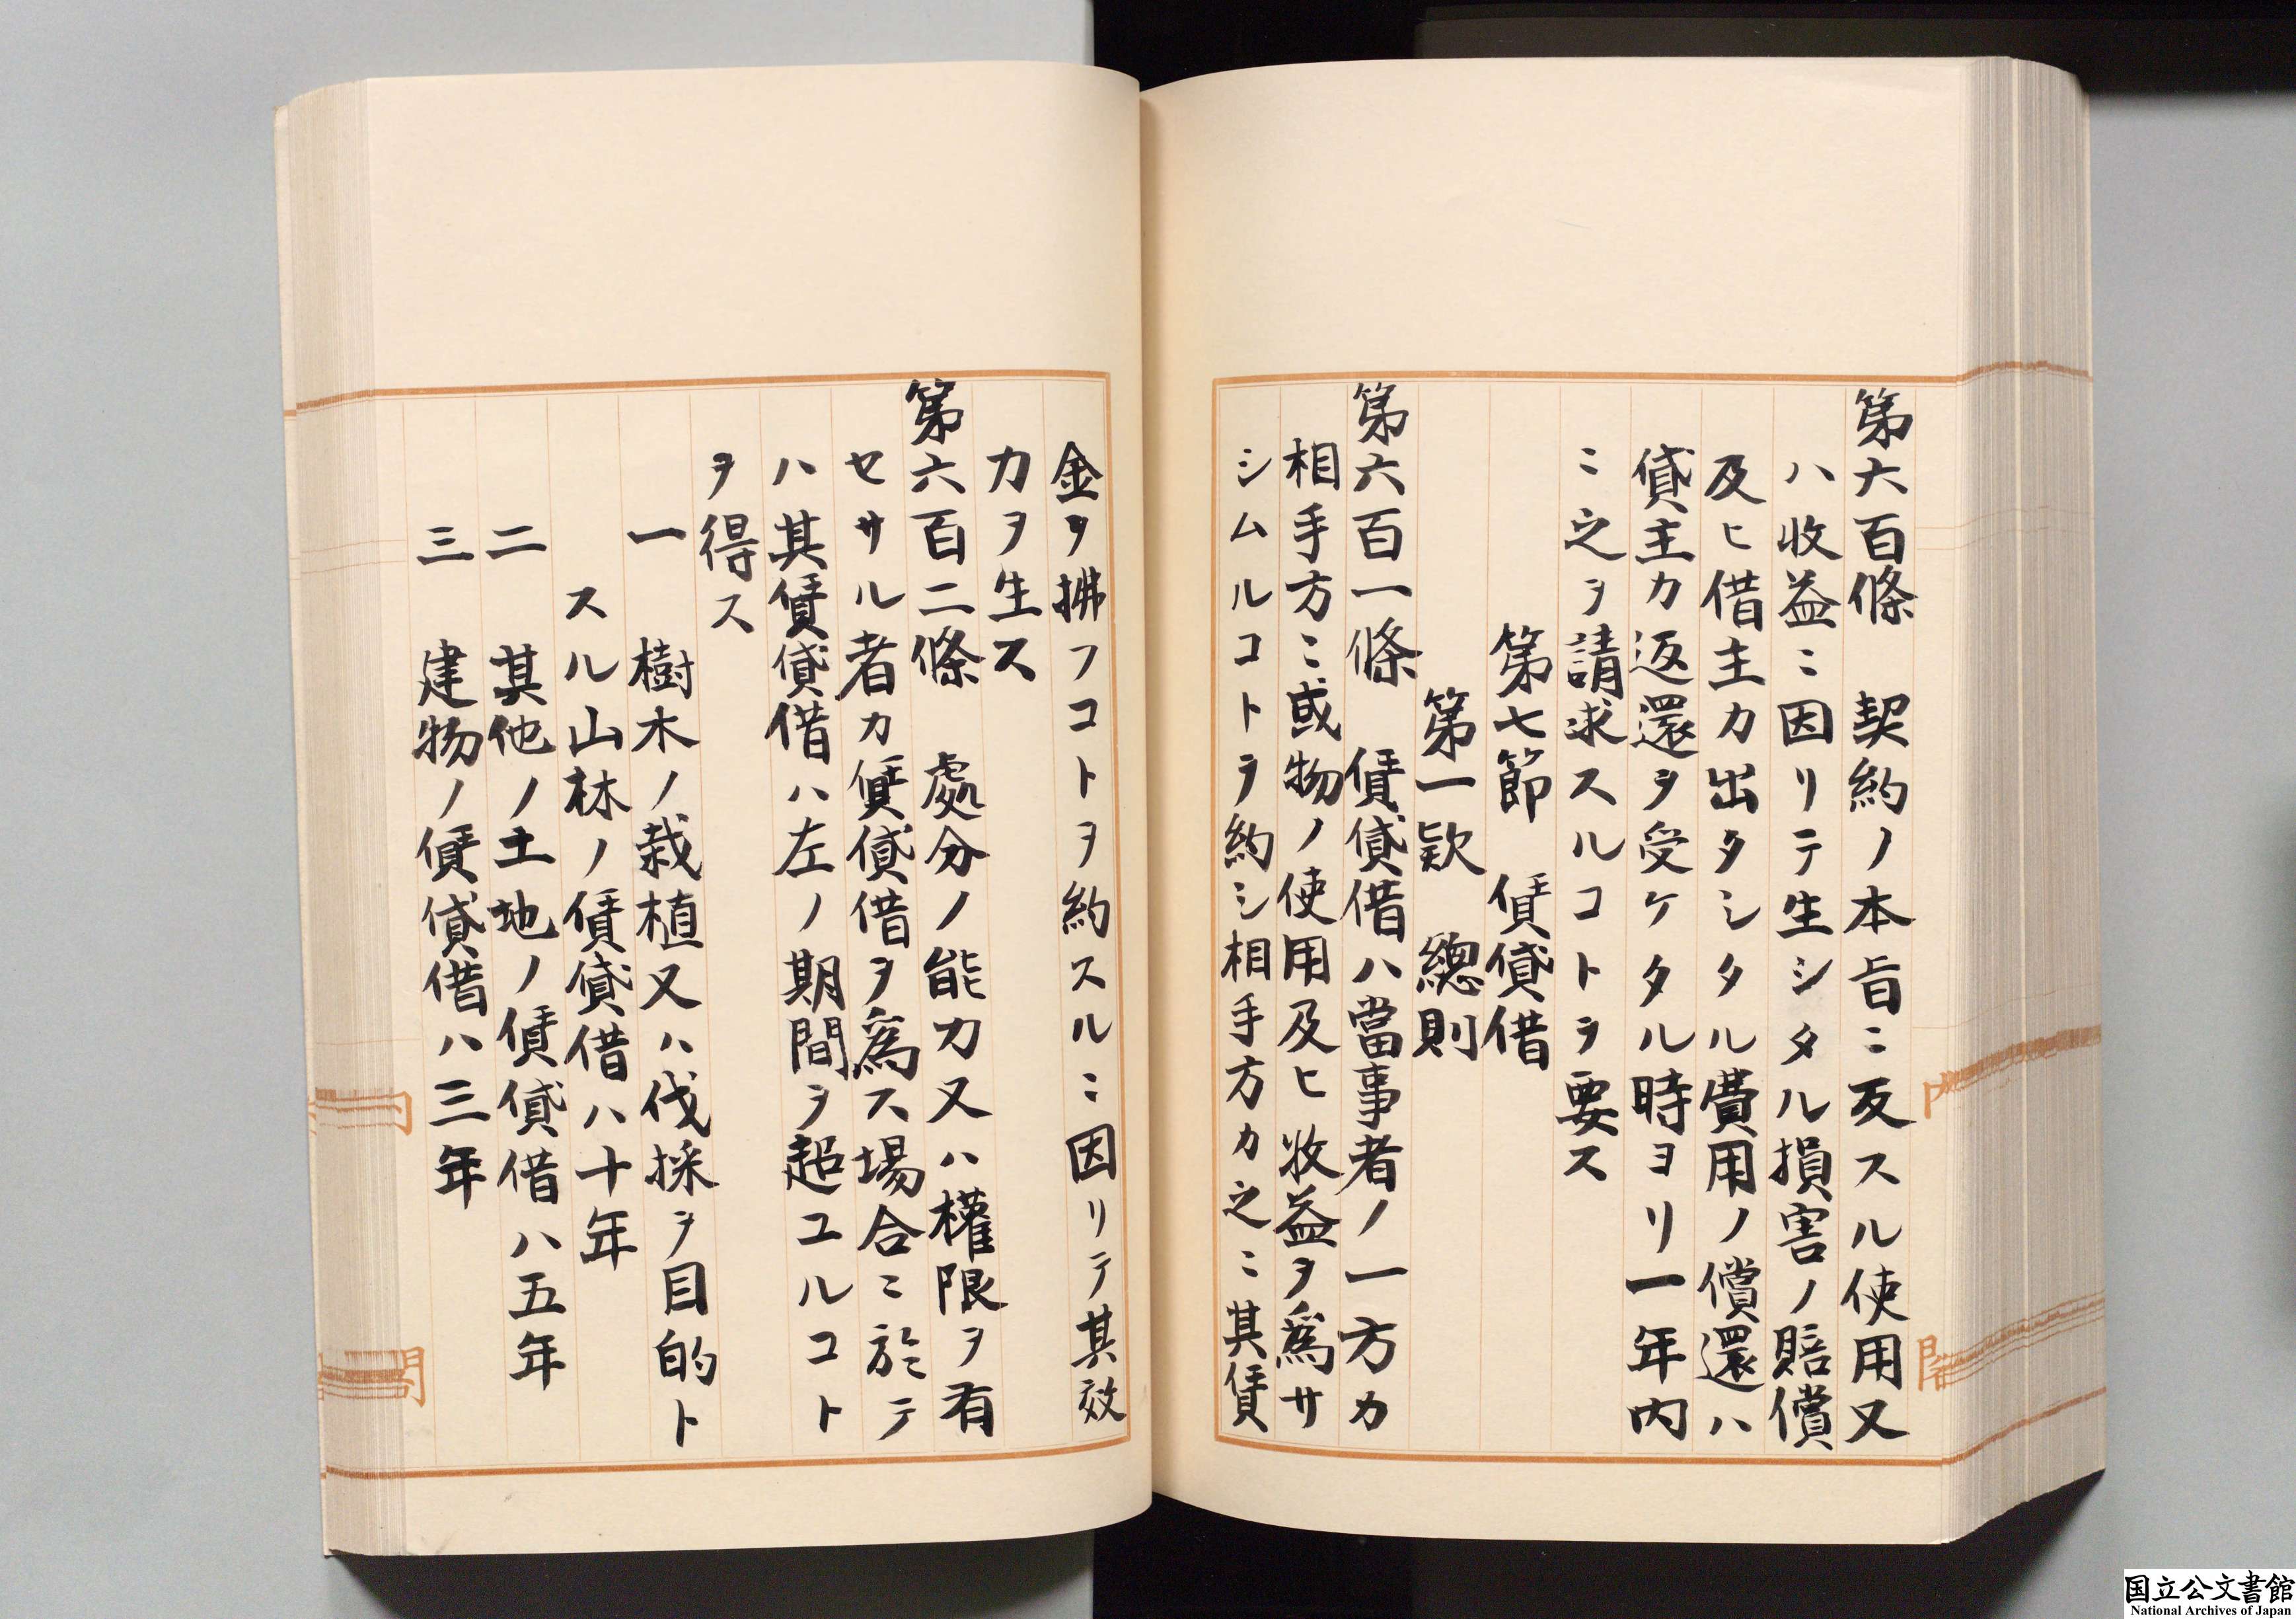 第六百條　契約ノ本旨ニ反スル使用又
ハ收益ニ因リテ生シタル損害ノ賠償
及ヒ借主カ出タシタル費用ノ償還ハ
貸主カ返還ヲ受ケタル時ヨリ一年內
ニ之ヲ請求スルコトヲ要ス
第七節　賃貸借
第一款　總則
第六百一條　賃貸借ハ當事者ノ一方カ
相手方ニ或物ノ使用及ヒ收益ヲ爲サ
シムルコトヲ約シ相手方カ之ニ其賃
金ヲ拂フコトヲ約スルニ因リテ其效
力ヲ生ス
第六百二條　處分ノ能力又ハ權限ヲ有
セサル者カ賃貸借ヲ爲ス場合ニ於テ
ハ其賃貸借ハ左ノ期間ヲ超ユルコト
ヲ得ス
一　樹木ノ栽植又ハ伐採ヲ目的ト
スル山林ノ賃貸借ハ十年
二　其他ノ土地ノ賃貸借ハ五年
三　建物ノ賃貸借ハ三年
国立公文書館
National Archives of Japan